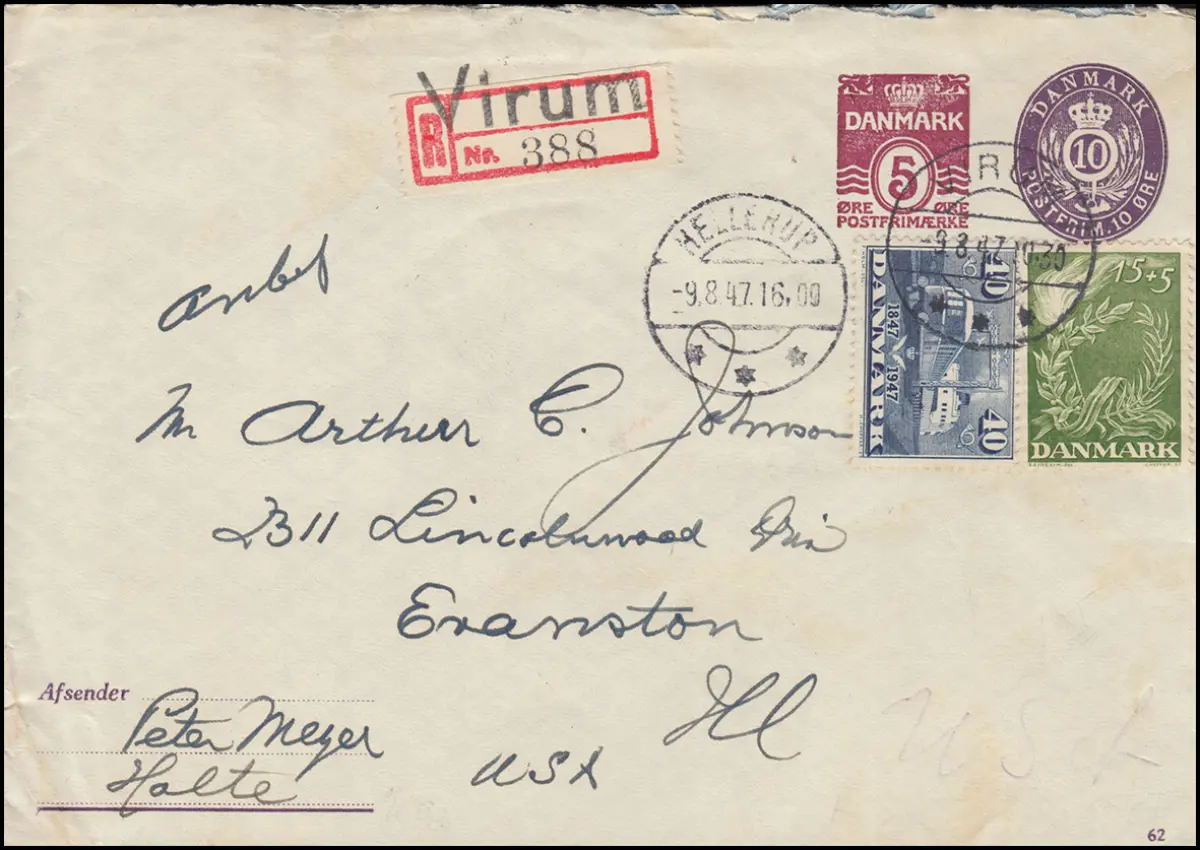 Virum
R Nr. 388
DANMARK
5
ØRE ØRE
POSTFRIMÆRKE
DANMARK
10
POSTFRIM. 10 ØRE
HELLERUP
-9.8.47.16.00
VIRUM
-9.8.47.10.30
40
DANMARK
1847 1947
40
15+5
DANMARK
anbef
Mr Arthur C. Johnson
2311 Lincolnwood
Evanston
Ill
USA
USA
Afsender
Peter Meyer
Holte
62